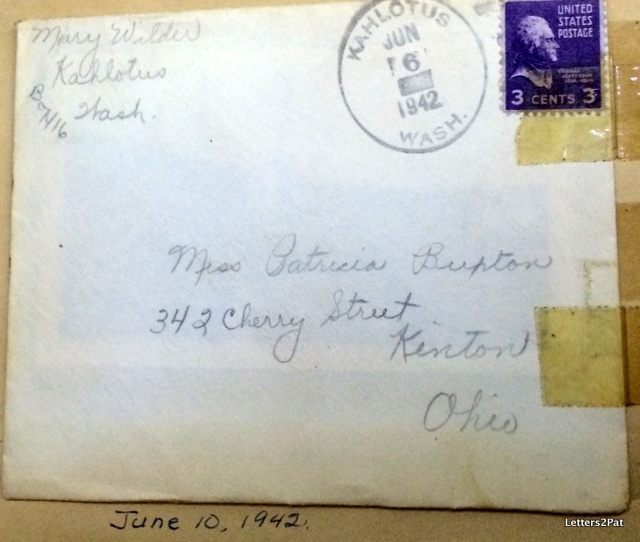 Mary Wilder
Kahlotus
Box 16 Wash.
KAHLOTUS
JUN
6
1942
WASH.
UNITED
STATES
POSTAGE
3 CENTS 3
Miss Patricia Bupton
342 Cherry Street
Kenton
Ohio
June 10, 1942.
Letters2Pat